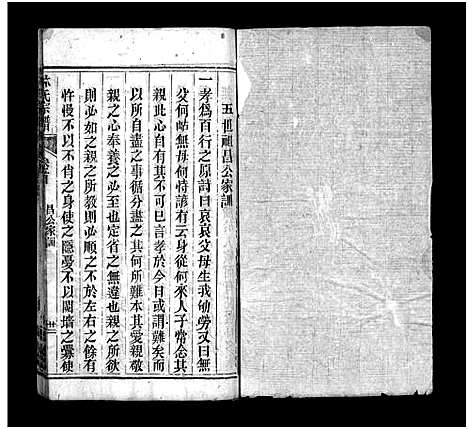 五世祖昌公家訓
一孝爲百行之原詩曰哀哀父母生我劬勞又曰無
父何怙無母何恃諺有云身從何來人子常念其
親此心自有不可已言孝於今日或謂難矣而
以所自盡之事循分盡之其何所難本其愛親敬
親之心奉養之必至也定省之無違也親之所欲
則必如之親之所教則必順之不於左右之餘有
忤慢不以不肖之身使之隱憂不以鬩墻之釁使
氏宗譜
昌公家訓